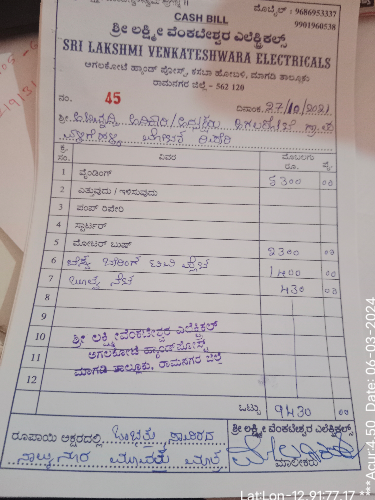 ಮೊಬೈಲ್ : 9686953337
CASH BILL
9901960538
ಶ್ರೀ ಲಕ್ಷ್ಮೀ ವೆಂಕಟೇಶ್ವರ ಎಲೆಕ್ಟ್ರಿಕಲ್ಸ್
SRI LAKSHMI VENKATESHWARA ELECTRICALS
ಅಗಲಕೋಟೆ ಹ್ಯಾಂಡ್ ಪೋಸ್ಟ್, ಕಸಬಾ ಹೋಬಳಿ, ಮಾಗಡಿ ತಾಲ್ಲೂಕು
ರಾಮನಗರ ಜಿಲ್ಲೆ - 562 120
ನಂ. 45 ದಿನಾಂಕ 27/10/2021
ಶ್ರೀ
ಕ್ರ. ಸಂ. ವಿವರ ಮೊಬಲಗು ರೂ. ಪೈ.
1 ವೈಂಡಿಂಗ್ 5300 00
2 ಎತ್ತುವುದು / ಇಳಿಸುವುದು
3 ಪಂಪ್ ರಿಪೇರಿ
4 ಸ್ಟಾರ್ಟರ್
5 ಮೋಟರ್ ಬುಷ್ 2300 00
6 1400 00
7 430 00
8
9
10 ಶ್ರೀ ಲಕ್ಷ್ಮೀ ವೆಂಕಟೇಶ್ವರ ಎಲೆಕ್ಟ್ರಿಕಲ್
11 ಅಗಲಕೋಟೆ ಹ್ಯಾಂಡ್ ಪೋಸ್ಟ್
12 ಮಾಗಡಿ ತಾಲ್ಲೂಕು, ರಾಮನಗರ ಜಿಲ್ಲೆ
ಒಟ್ಟು 9430 00
ರೂಪಾಯಿ ಅಕ್ಷರದಲ್ಲಿ ಒಂಬತ್ತು ಸಾವಿರದ ಶ್ರೀ ಲಕ್ಷ್ಮೀ ವೆಂಕಟೇಶ್ವರ ಎಲೆಕ್ಟ್ರಿಕಲ್ಸ್
ನಾಲ್ಕುನೂರ ಮೂವತ್ತು ಮಾತ್ರ
ಮಾಲೀಕರು
LatLon-12.91:77.17
***Acur:4.50 Date: 06-03-2024